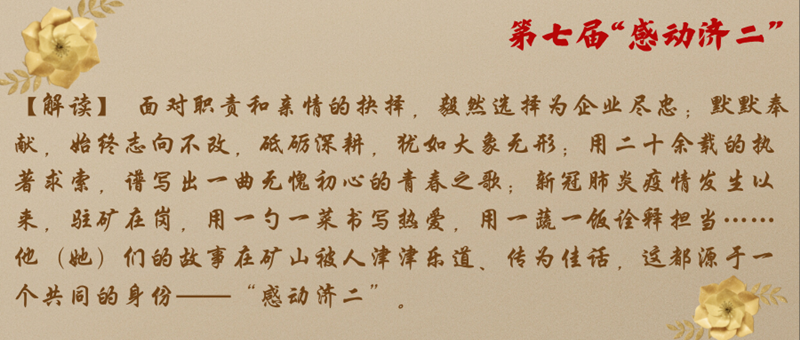 第七届“感动济二”
【解读】 面对职责和亲情的抉择，毅然选择为企业尽忠；默默奉
献，始终志向不改，砥砺深耕，犹如大象无形；用二十余载的执
著求索，谱写出一曲无愧初心的青春之歌；新冠肺炎疫情发生以
来，驻矿在岗，用一勺一菜书写热爱，用一蔬一饭诠释担当……
他（她）们的故事在矿山被人津津乐道、传为佳话，这都源于一
个共同的身份——“感动济二”。